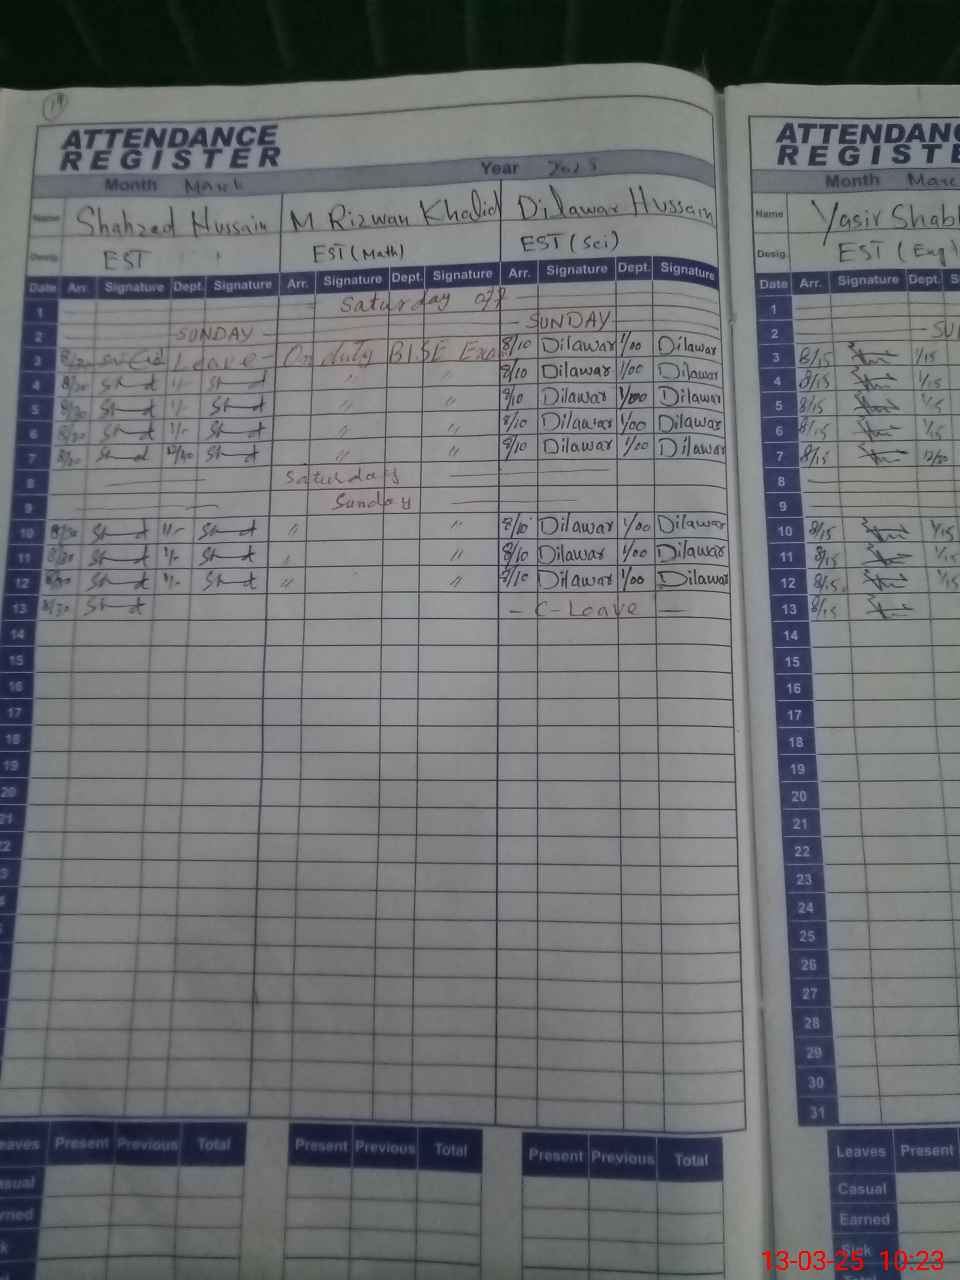 19
ATTENDANCE
REGISTER
Year 2025
Month March
Name Shahzad Hussain M Rizwan Khalid Dilawar Hussain
Desig. EST EST (Math) EST (Sci)
Date Arr. Signature Dept. Signature Arr. Signature Dept. Signature Arr. Signature Dept. Signature
1 Saturday off
2 SUNDAY SUNDAY
3 Leave On duty BISE 8/10 Dilawar 1/00 Dilawar
4 8/30 〃 〃 8/10 Dilawar 1/00 Dilawar
5 8/30 〃 〃 8/10 Dilawar 1/00 Dilawar
6 8/30 〃 〃 8/10 Dilawar 1/00 Dilawar
7 8/30 〃 〃 8/10 Dilawar 1/00 Dilawar
8 Saturday
9 Sunday
10 8/30 〃 〃 8/10 Dilawar 1/00 Dilawar
11 8/30 〃 8/10 Dilawar 1/00 Dilawar
12 8/30 〃 〃 8/10 Dilawar 1/00 Dilawar
13 8/30 - C-Leave -
14
15
16
17
18
19
20
21
2
3
Leaves Present Previous Total Present Previous Total Present Previous Total
ATTENDANC
REGISTE
Month Marc
Name Yasir Shab
Desig. EST (Engl
Date Arr. Signature Dept. S
1
2 - SU
3 8/15 1/15
4 8/15 1/15
5 8/15 1/15
6 8/15 1/15
7 8/15 12/00
8
9
10 8/15 1/15
11 8/15 1/15
12 8/15 1/15
13 8/15
14
15
16
17
18
19
20
21
22
23
24
25
26
27
28
29
30
31
Leaves Present
Casual
Earned
Sick
13-03-25 10:23